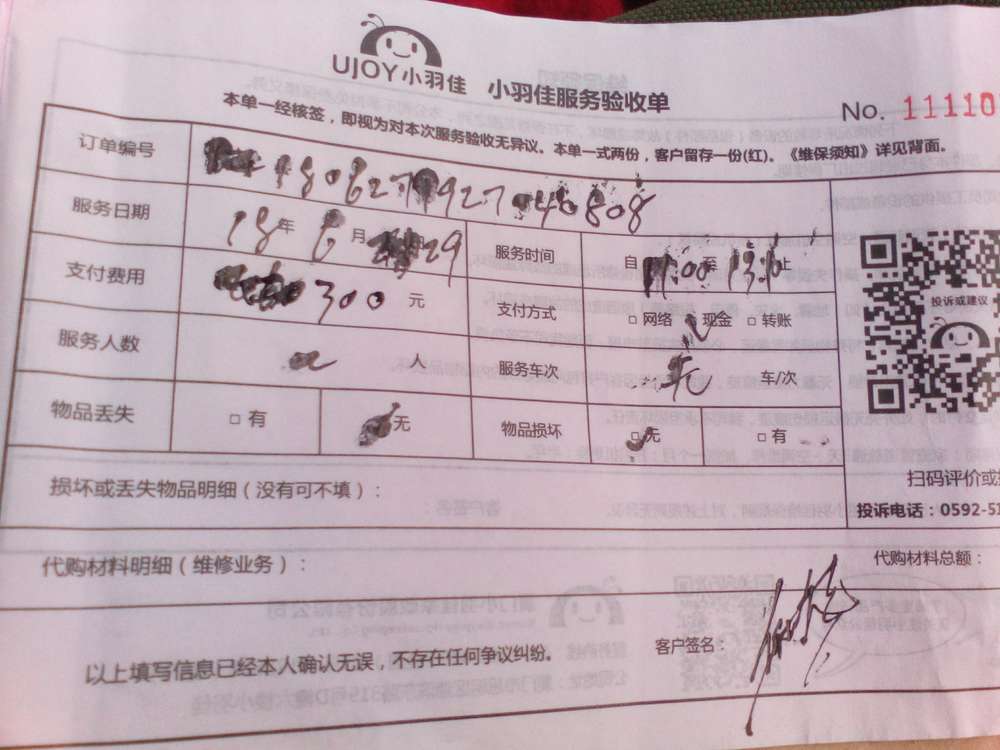 UJOY小羽佳 小羽佳服务验收单
No. 11110
本单一经核签，即视为对本次服务验收无异议。本单一式两份，客户留存一份(红)。《维保须知》详见背面。
订单编号
服务日期 18年6月29 服务时间 自 11:00至
支付费用 300元 支付方式 □网络 现金 □转账
投诉或建议
服务人数 人 服务车次 车/次
物品丢失 □有 无 物品损坏 无 □有
扫码评价或
损坏或丢失物品明细（没有可不填）：
投诉电话：0592-51
代购材料明细（维修业务）：
代购材料总额：
以上填写信息已经本人确认无误，不存在任何争议纠纷。
客户签名：